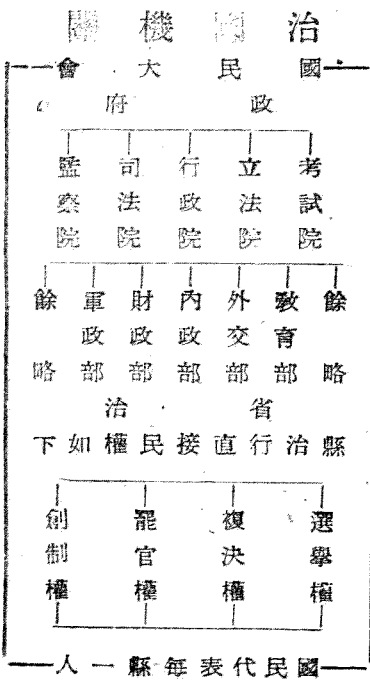 治國機關
國民大會
政府
考試院
立法院
行政院
司法院
監察院
餘略
教育部
外交部
內政部
財政部
軍政部
餘略
省治
縣治行直接民權如下
選舉權
複決權
罷官權
創制權
國民代表每縣一人